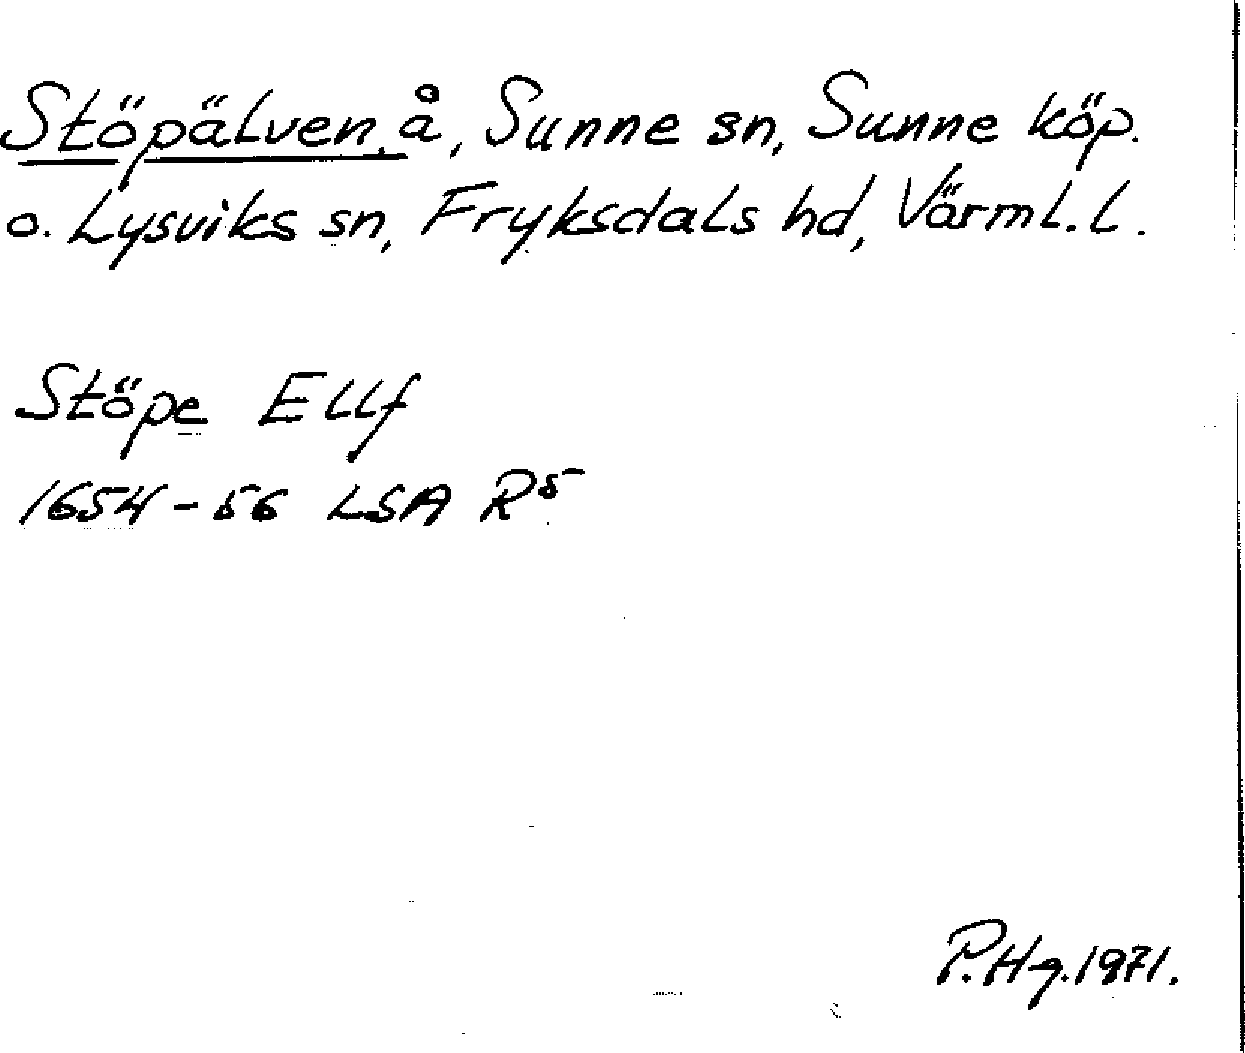 Stöpälven, å, Sunne sn, Sunne köp.
o. Lysviks sn, Fryksdals hd, Värml. l.
Stöpe Ellf
1654-56 LSA R5
P. Hg. 1971.